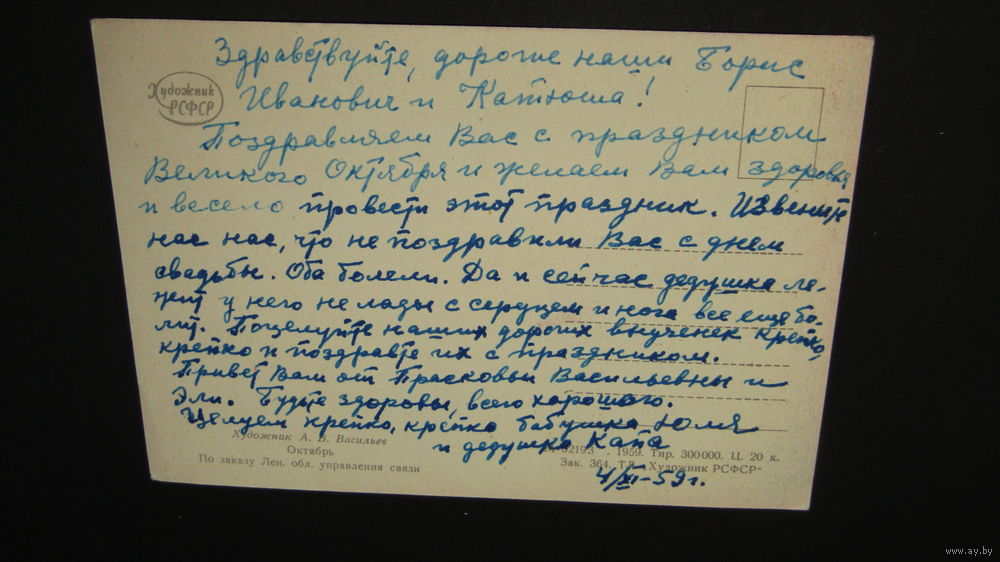 Здравствуйте, дорогие наши Борис
Иванович и Катюша!
Художник
РСФСР
Поздравляем Вас с праздником
Великого Октября и желаем Вам здоровья
и весело провести этот праздник. Извените
нас нас, что не поздравили Вас с днем
свадьбы. Оба болели. Да и сейчас дедушка ле-
жит у него не лады с серцем и нога все еще бо-
лит. Поцелуйте наших дорогих внученек крепко,
крепко и поздравте их с праздником.
Привет Вам от Прасковьи Васильевны и
Эли. Будте здоровы, всего хорошего.
Целуем крепко, крепко бабушка Юля
и дедушка Капа
4/XI-59г.
Художник А. В. Васильев
Октябрь
По заказу Лен. обл. управления связи
М-32193 . 1959. Тир. 300000. Ц. 20 к.
Зак. 364. Тип. „Художник РСФСР"
www.ay.by